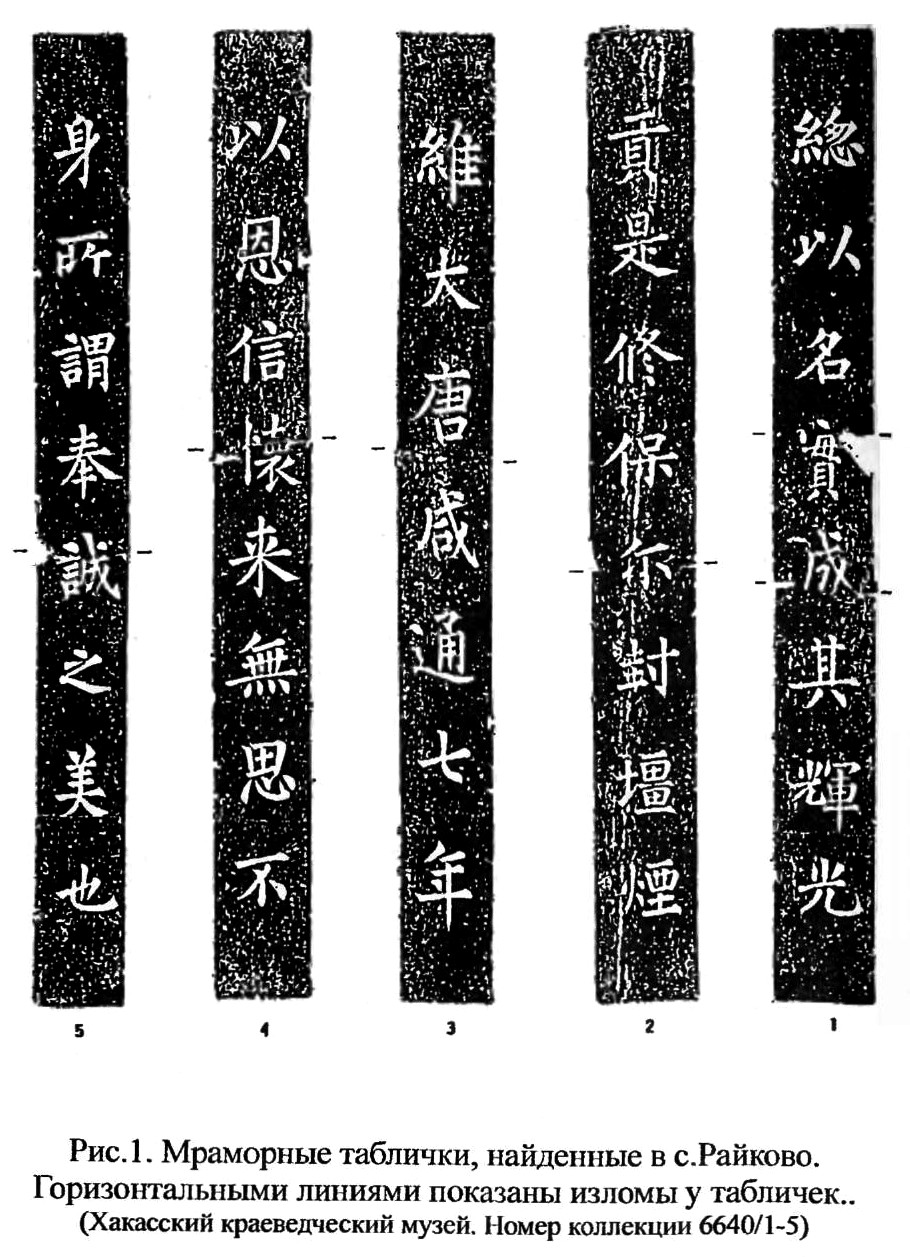 緫以名實成其輝光
貢是修保尒封壃煙
維大唐咸通七年
以恩信懷来無思不
身所謂奉誠之美也
5 4 3 2 1
Рис.1. Мраморные таблички, найденные в с.Райково.
Горизонтальными линиями показаны изломы у табличек..
(Хакасский краеведческий музей. Номер коллекции 6640/1-5)